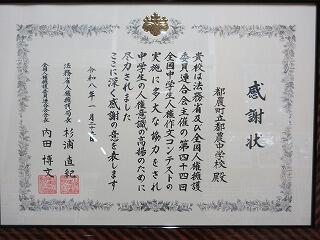 感謝状
都農町立都農中学校 殿
貴校は法務省及び全国人権擁護
委員連合会主催の第四十四回
全国中学生人権作文コンテストの
実施に多大な協力をされ
中学生の人権意識の高揚のために
尽力されました
ここに深く感謝の意を表します
令和八年一月二十日
法務省人権擁護局長 杉浦直紀
全国人権擁護委員連合会会長 内田博文